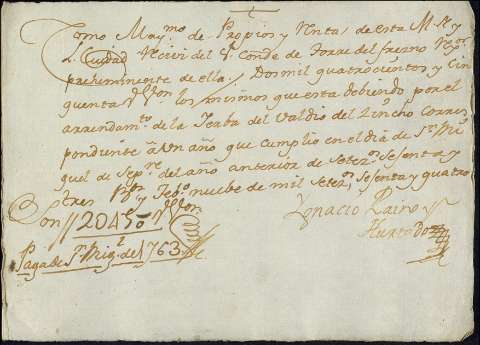 Como May.mo de Propios y Rentas de esta M. N. y
L. Ciudad Reciví del S.r Conde de Torre del fresno Rex.or
preheminente de ella, Dosmil quatrocientos y cin
quenta R.s Von los mismos que esta debiendo por el
arrendam.to de la Yerba del Valdio del Zincho Corres
pondiente â un año que cumplio en el dia de S.n Mi
guel de Sep.re del año anterior de Setez.s Sesenta y
tres y Feb.o nuebe de mil Setez.s Sesenta y quatro
Son 2045o R.s Von
Ignacio Laino y
Hurtado
Paga de S.n Mig.l de 1763